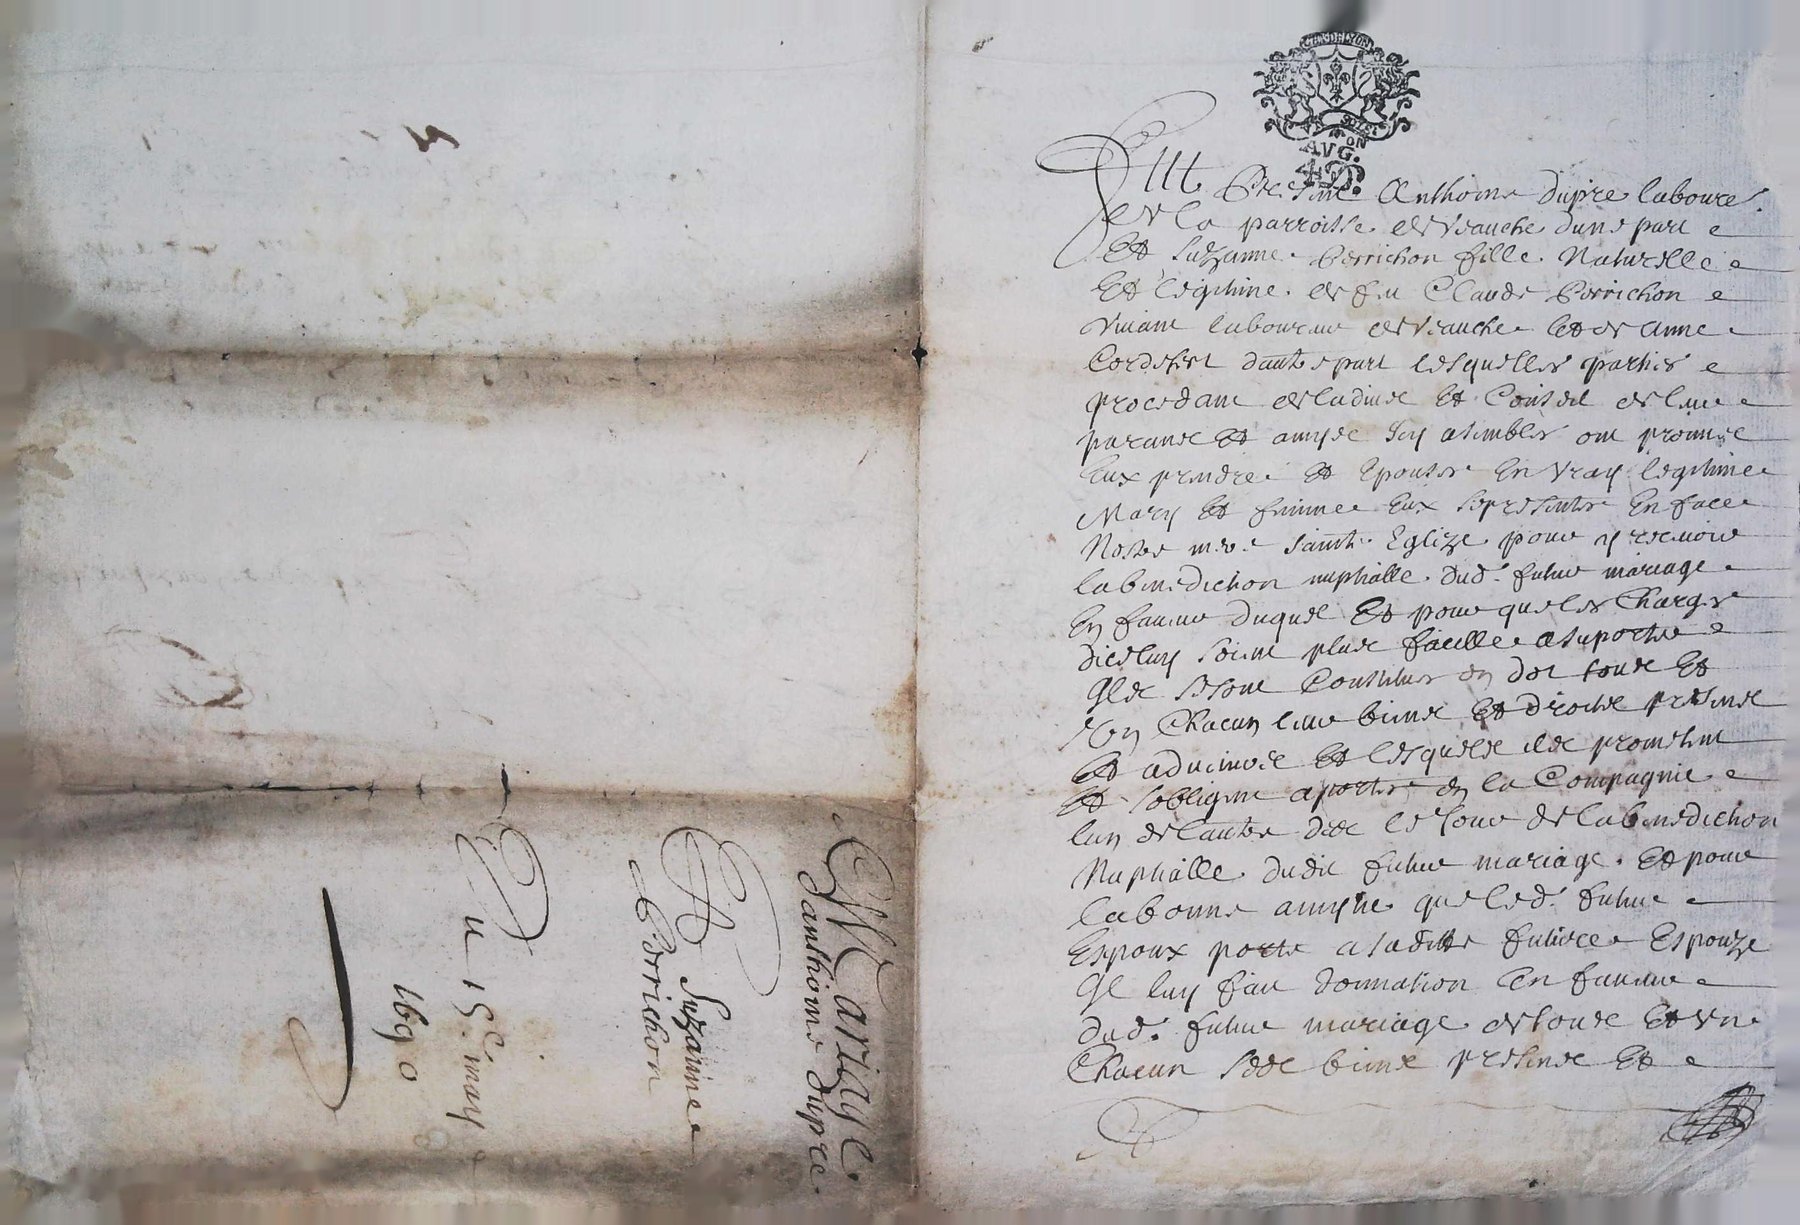 Mariage
d'anthoine dupré
Et Suzanne
Perrichon
Du 15e may
1690
GEN DE LYON
AVG.ON
Fut Present Anthoine dupre laboureur
de la parroisse de veauche dune part
Et Suzanne Perrichon fille Naturelle
Et legitime de feu Claude Perrichon
vivant laboureur de veauche Et de anne
dautre part lesquelles parties
procedant de ladvis Et Conseil de leurs
parans Et amys Icy asembles ont promis
Eux prendre Et Epouser En vray legitime
Mary Et femme Eux se presenter En face
Nostre mere sainte Eglize pour y recevoir
la benediction nuptialle dud. futur mariage
En faveur duquel Et pour que les Charges
diceluy soient plus facille a suporter
Ils se sont Constitues en dot tous Et
un Chacun leurs biens Et droits presens
Et advenir Et lesquels ils prometent
Et sobligent aporter en la Compagnie
lun de lautre des le jour de la benediction
Nuptialle dudit futur mariage Et pour
la bonne amytie que led. futur
Espoux porte a sa ditte future Espouze
Il luy fait donnation En faveur
dud. futur mariage de tous Et un
Chacun ses biens presens Et